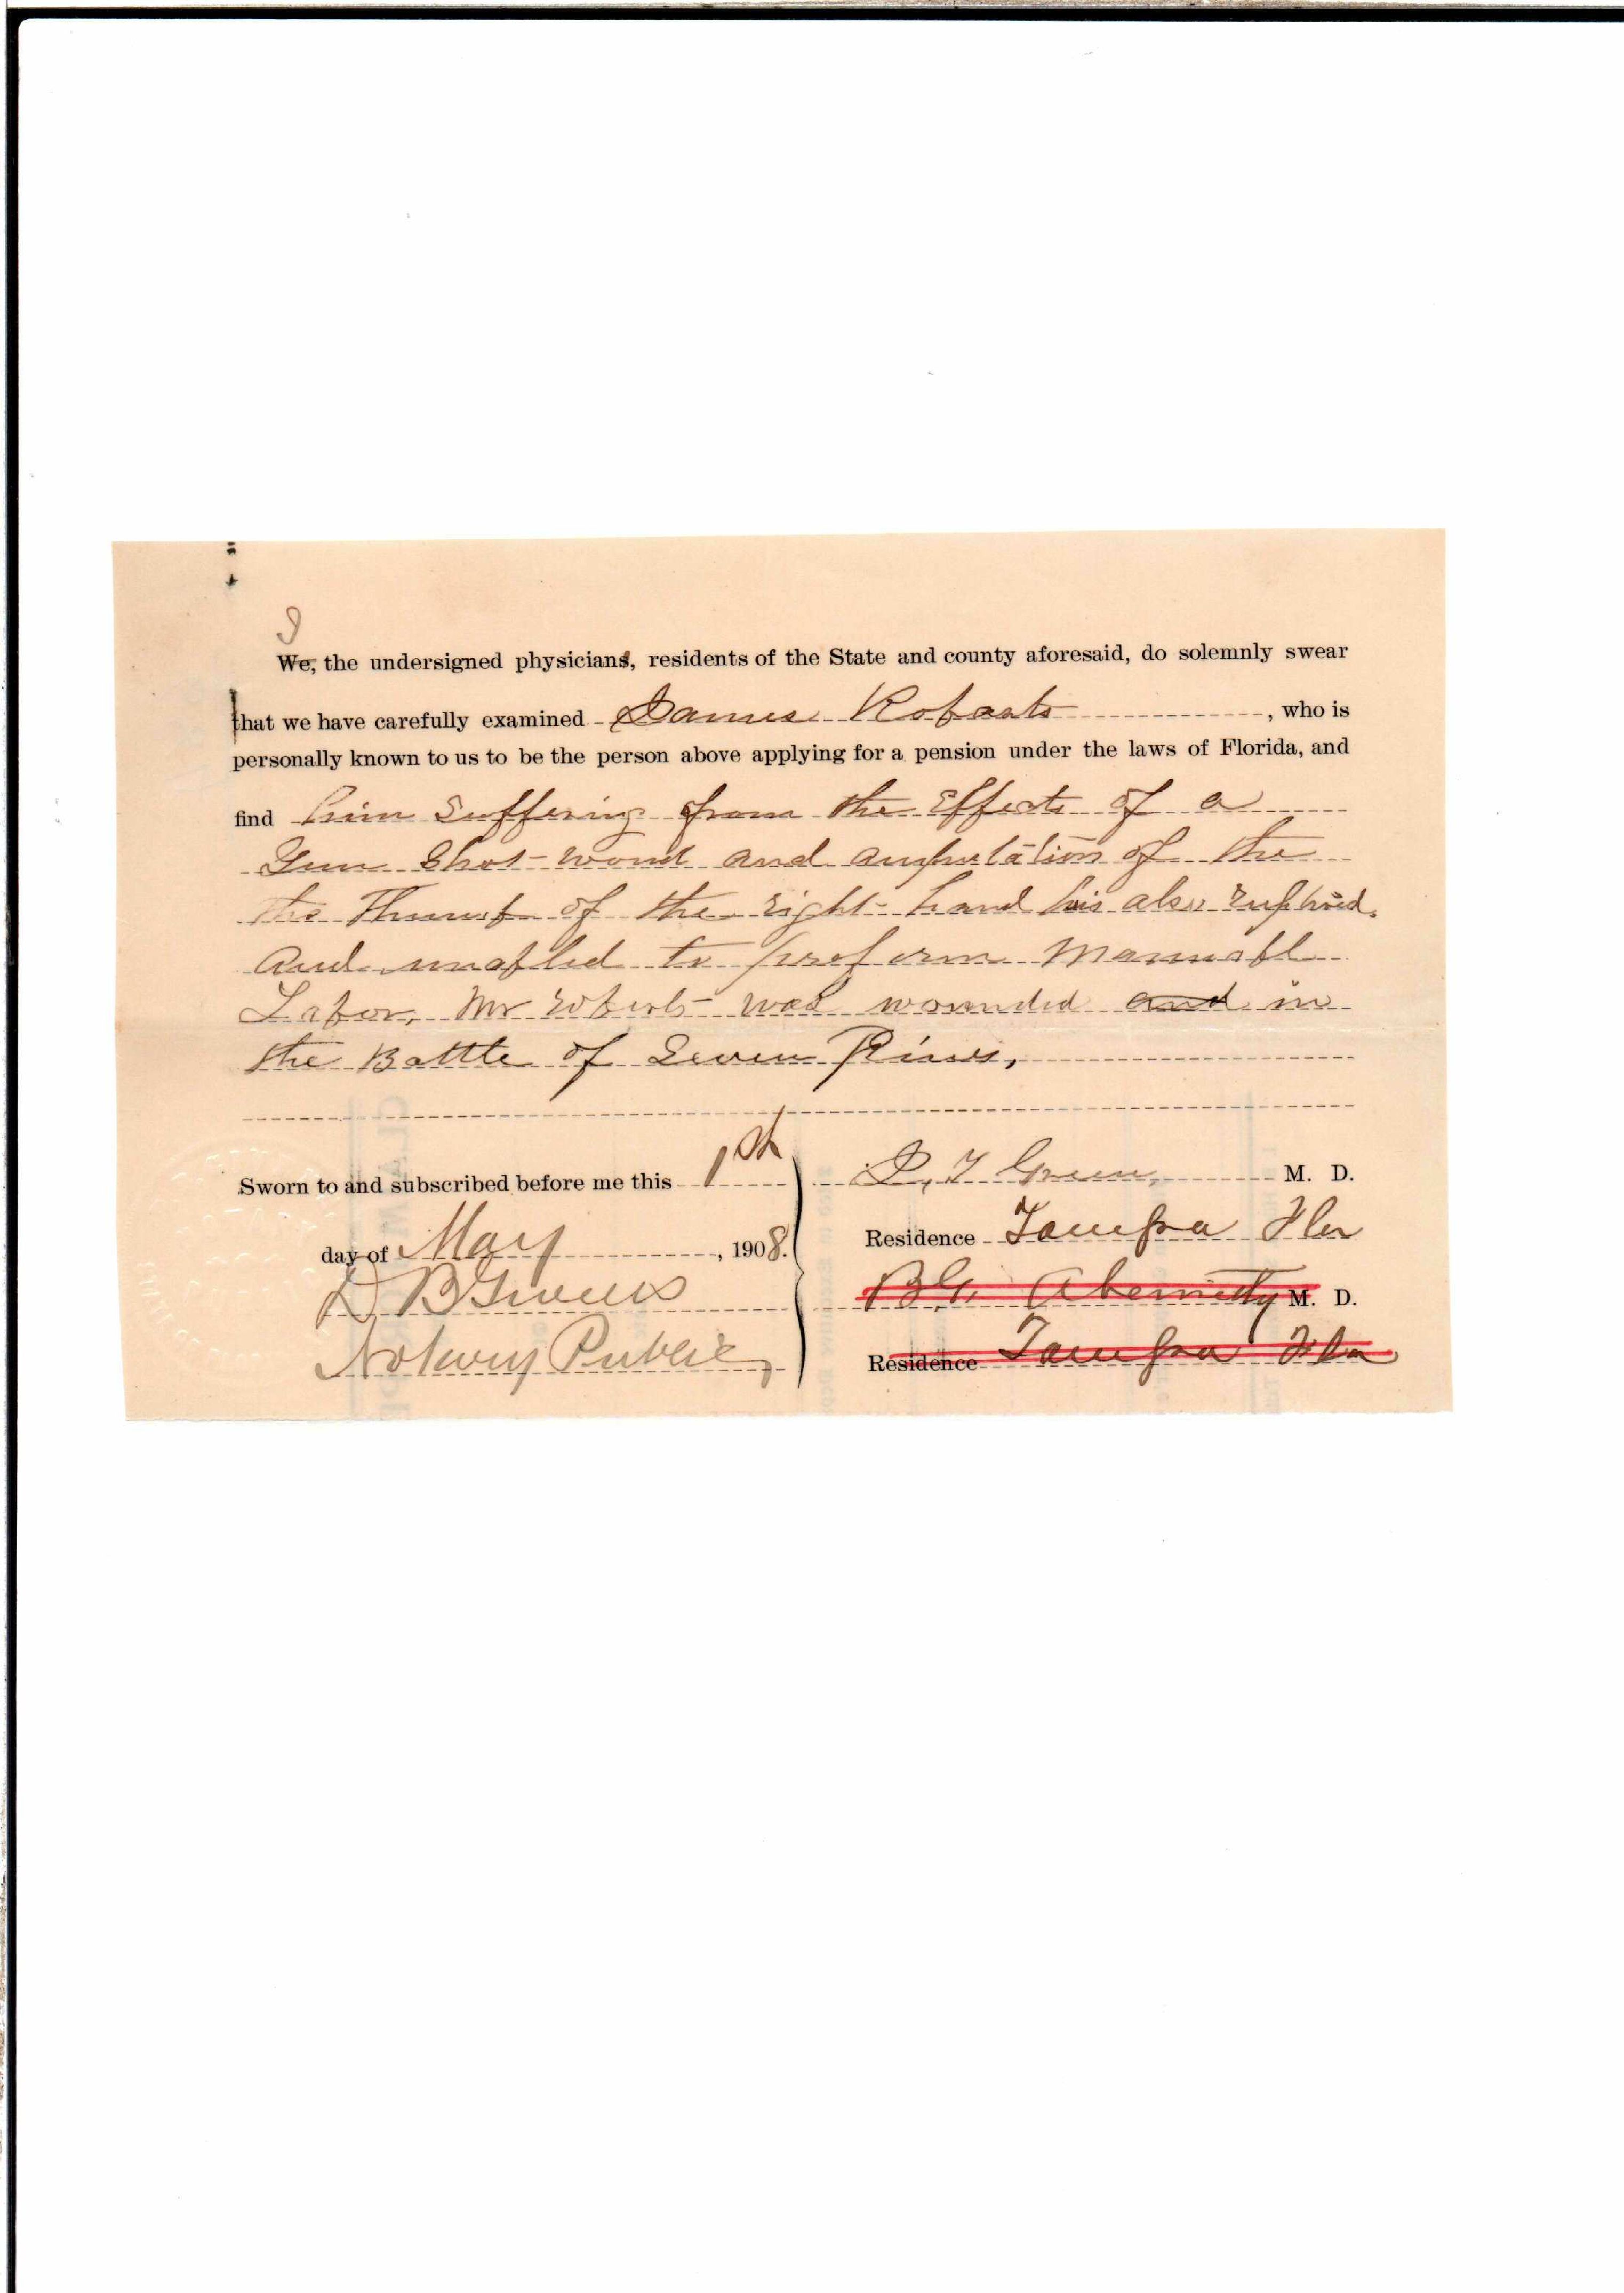 I
We, the undersigned physicians, residents of the State and county aforesaid, do solemnly swear
that we have carefully examined James Robarts, who is
personally known to us to be the person above applying for a pension under the laws of Florida, and
find him Suffering from the Effects of a
Gun Shot wound and amputation of the
the Thumb of the right hand his also ruptured.
and unabled to preform Manuabl
Labor, Mr Roberts was wounded and in
the Battle of Seven Pines,
Sworn to and subscribed before me this 1st
day of May, 1908.
D B Givens
Notary Public
Green, M. D.
Residence Tampa Fla
B.G. Abernethy M. D.
Residence Tampa Fla